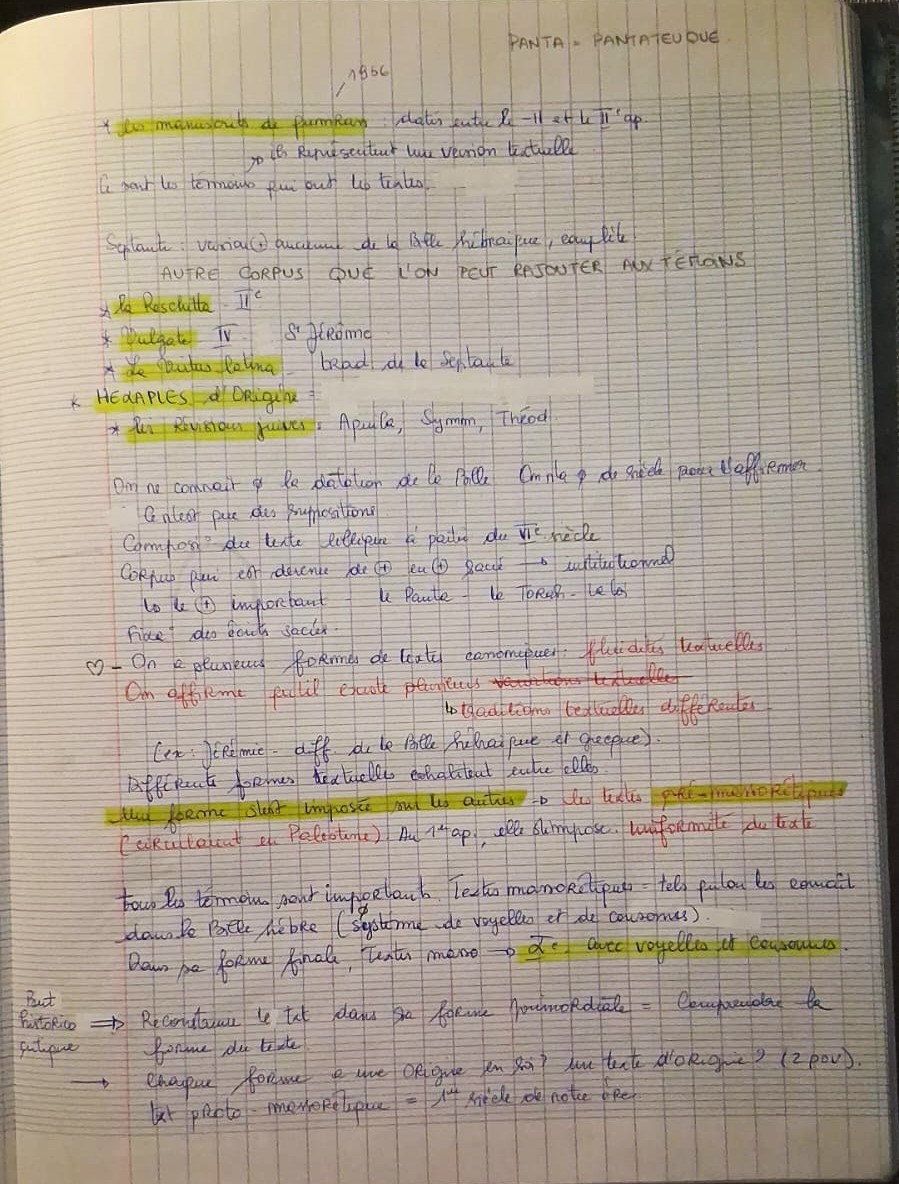 PANTA = PANTATEUQUE
1956
* les manuscrits de Qumran : datés entre le -II et le IIe ap.
↪ ils Représentent une version textuelle
Ce sont les témoins qui ont les textes.
Septante : version (+) ancienne de la Bible hébraïque, complète.
AUTRE CORPUS QUE L'ON PEUT RAJOUTER AUX TÉMOINS
* la Peschitta - IIe
* Vulgate IV St Jérôme
* La Vetus latina trad de la Septante
* HEXAPLES d'Origène =
* les Révisions juives : Aquila, Symm, Théod.
On ne connait φ la datation de la Bible On n'a φ de siècle pour l'affirmer
Ce n'est que des suppositions
Composi° du texte biblique à partir du VIe siècle
Corpus qui est devenu de (+) en (+) sacré → institutionnel
↳ le (+) important - le Panta - la TORAH - la loi
Fixa° des écrits sacrés.
♡ - On a plusieurs formes de textes canoniques : fluidités textuelles
On affirme qu'il existe plusieurs variations textuelles
↳ traditions textuelles différentes
(ex : Jérémie - diff. de la Bible hébraïque et grecque).
Différente formes textuelles cohabitent entre elles.
Une forme s'est imposée sur les autres → les textes pré-massorétiques
(circulaient en Palestine) Au 1er ap, elle s'impose. uniformité du texte
tous les témoins sont important. Textes massorétiques = tels qu'on les connait
dans la Bible hébre (φ système de voyelles et de consonnes).
Dans sa forme finale, Textes masso → Xe avec voyelles et consonnes.
But historico critique ⇒ Reconstruire le txt dans sa forme primordiale = Comprendre la
forme du texte
→ Chaque forme a une origine en soi ? un texte d'origine ? (2 pov).
txt proto-massorétique = 1er siècle de notre ère